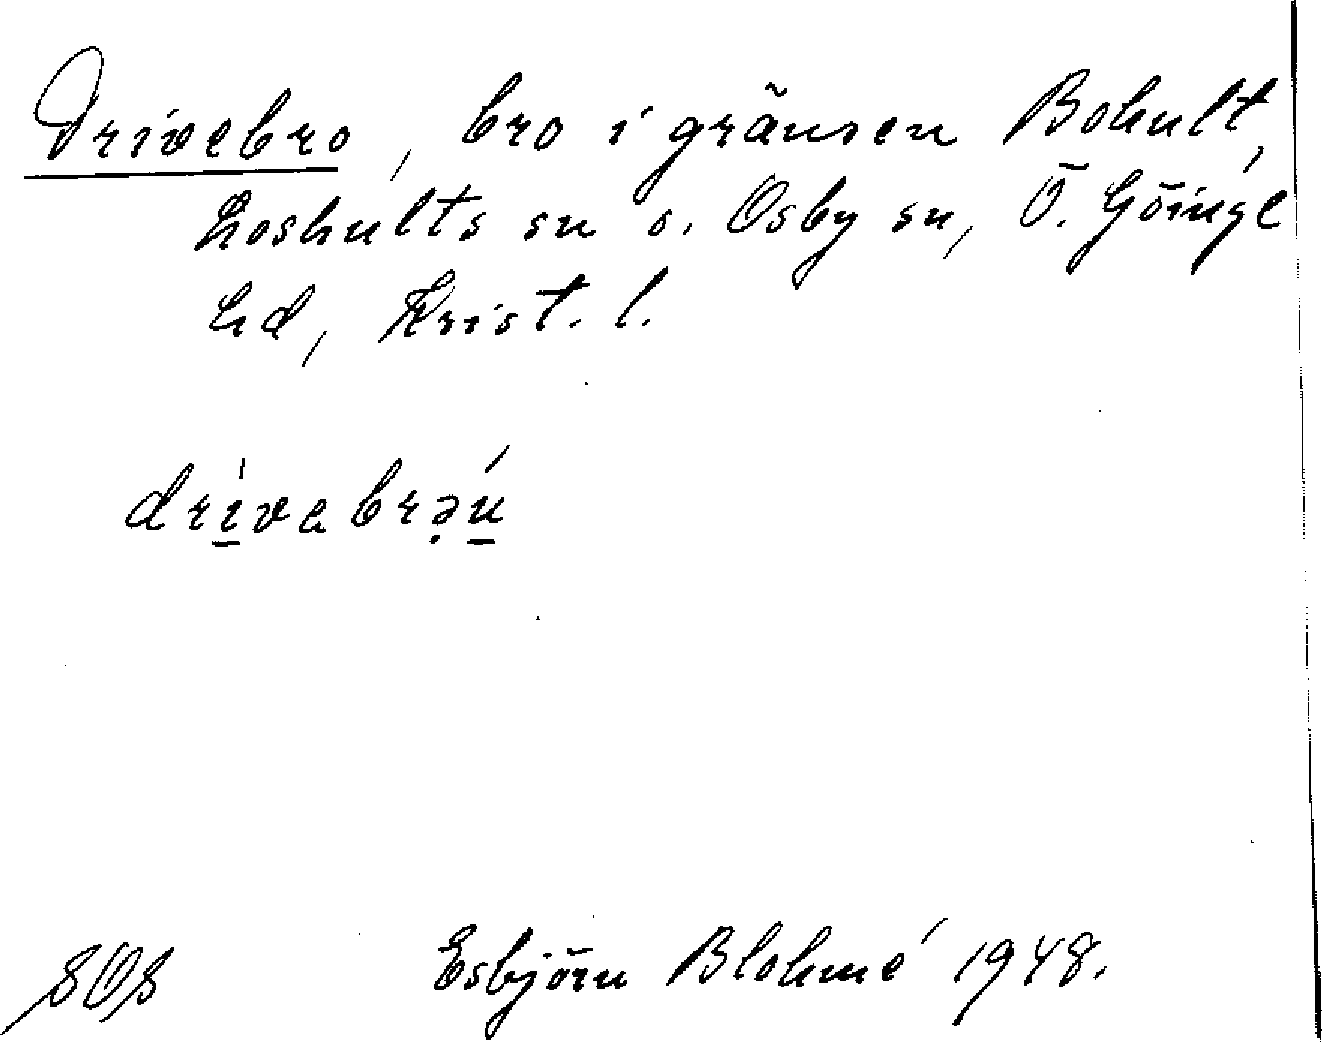 Drivebro, bro i gränsen Bohult,
Loshults sn o. Osby sn, Ö. Göinge
hd, Krist. l.
drivabrəu
Esbjörn Blohmé 1948.